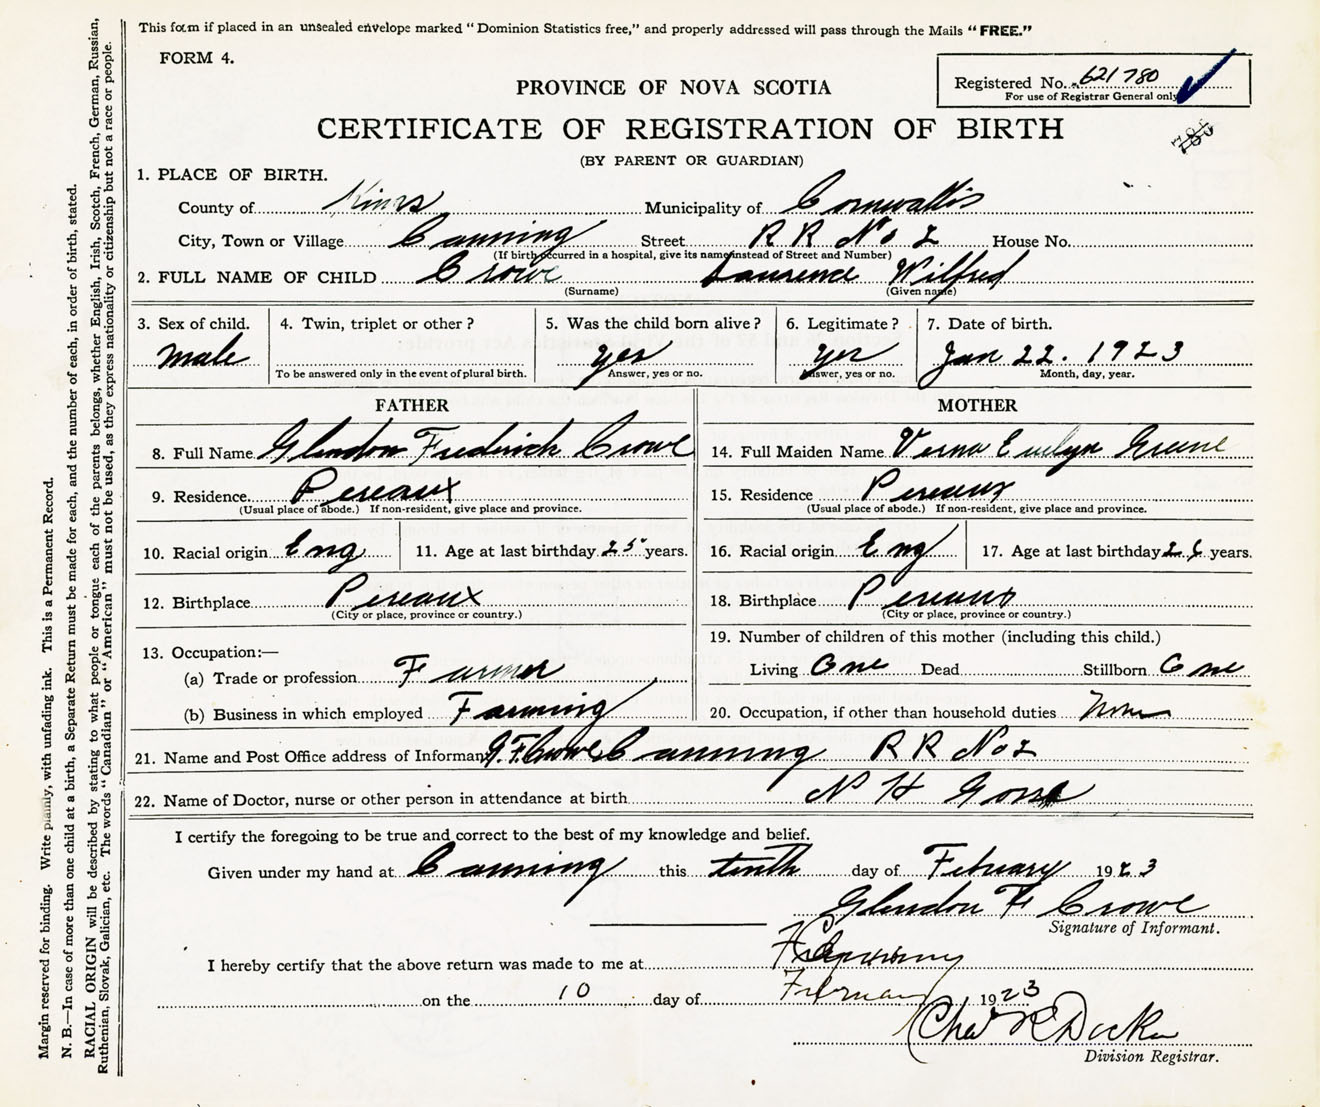 This form if placed in an unsealed envelope marked "Dominion Statistics free," and properly addressed will pass through the Mails "FREE."
FORM 4.
Registered No. 621780
For use of Registrar General only
PROVINCE OF NOVA SCOTIA
CERTIFICATE OF REGISTRATION OF BIRTH
785
(BY PARENT OR GUARDIAN)
1. PLACE OF BIRTH.
County of Kings Municipality of Cornwallis
City, Town or Village Canning Street R R No 2 House No.
(If birth occurred in a hospital, give its name instead of Street and Number)
2. FULL NAME OF CHILD Crowe Laurence Wilfred
(Surname) (Given name)
3. Sex of child. 4. Twin, triplet or other? 5. Was the child born alive? 6. Legitimate? 7. Date of birth.
Male yes yes Jan 22. 1923
To be answered only in the event of plural birth. Answer, yes or no. Answer, yes or no. Month, day, year.
FATHER MOTHER
8. Full Name Glendon Frederick Crowe 14. Full Maiden Name Verna Evelyn Greene
9. Residence Pereaux 15. Residence Pereaux
(Usual place of abode.) If non-resident, give place and province. (Usual place of abode.) If non-resident, give place and province.
10. Racial origin Eng 11. Age at last birthday 25 years. 16. Racial origin Eng 17. Age at last birthday years.
12. Birthplace Pereaux 18. Birthplace Pereaux
(City or place, province or country.) (City or place, province or country.)
19. Number of children of this mother (including this child.)
13. Occupation:—
(a) Trade or profession Farmer Living One Dead Stillborn One
(b) Business in which employed Farming 20. Occupation, if other than household duties None
21. Name and Post Office address of Informant G.F. Crowe Canning R R No 2
22. Name of Doctor, nurse or other person in attendance at birth N H
I certify the foregoing to be true and correct to the best of my knowledge and belief.
Given under my hand at Canning this tenth day of February 1923
Glendon F Crowe
Signature of Informant.
I hereby certify that the above return was made to me at Canning
on the 10 day of February 1923
Chas
Division Registrar.
Margin reserved for binding. Write plainly, with unfading ink. This is a Permanent Record.
N. B.—In case of more than one child at a birth, a Separate Return must be made for each, and the number of each, in order of birth, stated.
RACIAL ORIGIN will be described by stating to what people or tongue each of the parents belongs, whether English, Irish, Scotch, French, German, Russian,
Ruthenian, Slovak, Galician, etc. The words "Canadian" or "American" must not be used, as they express nationality or citizenship but not a race or people.